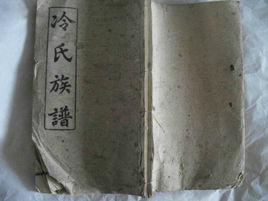 冷氏族譜